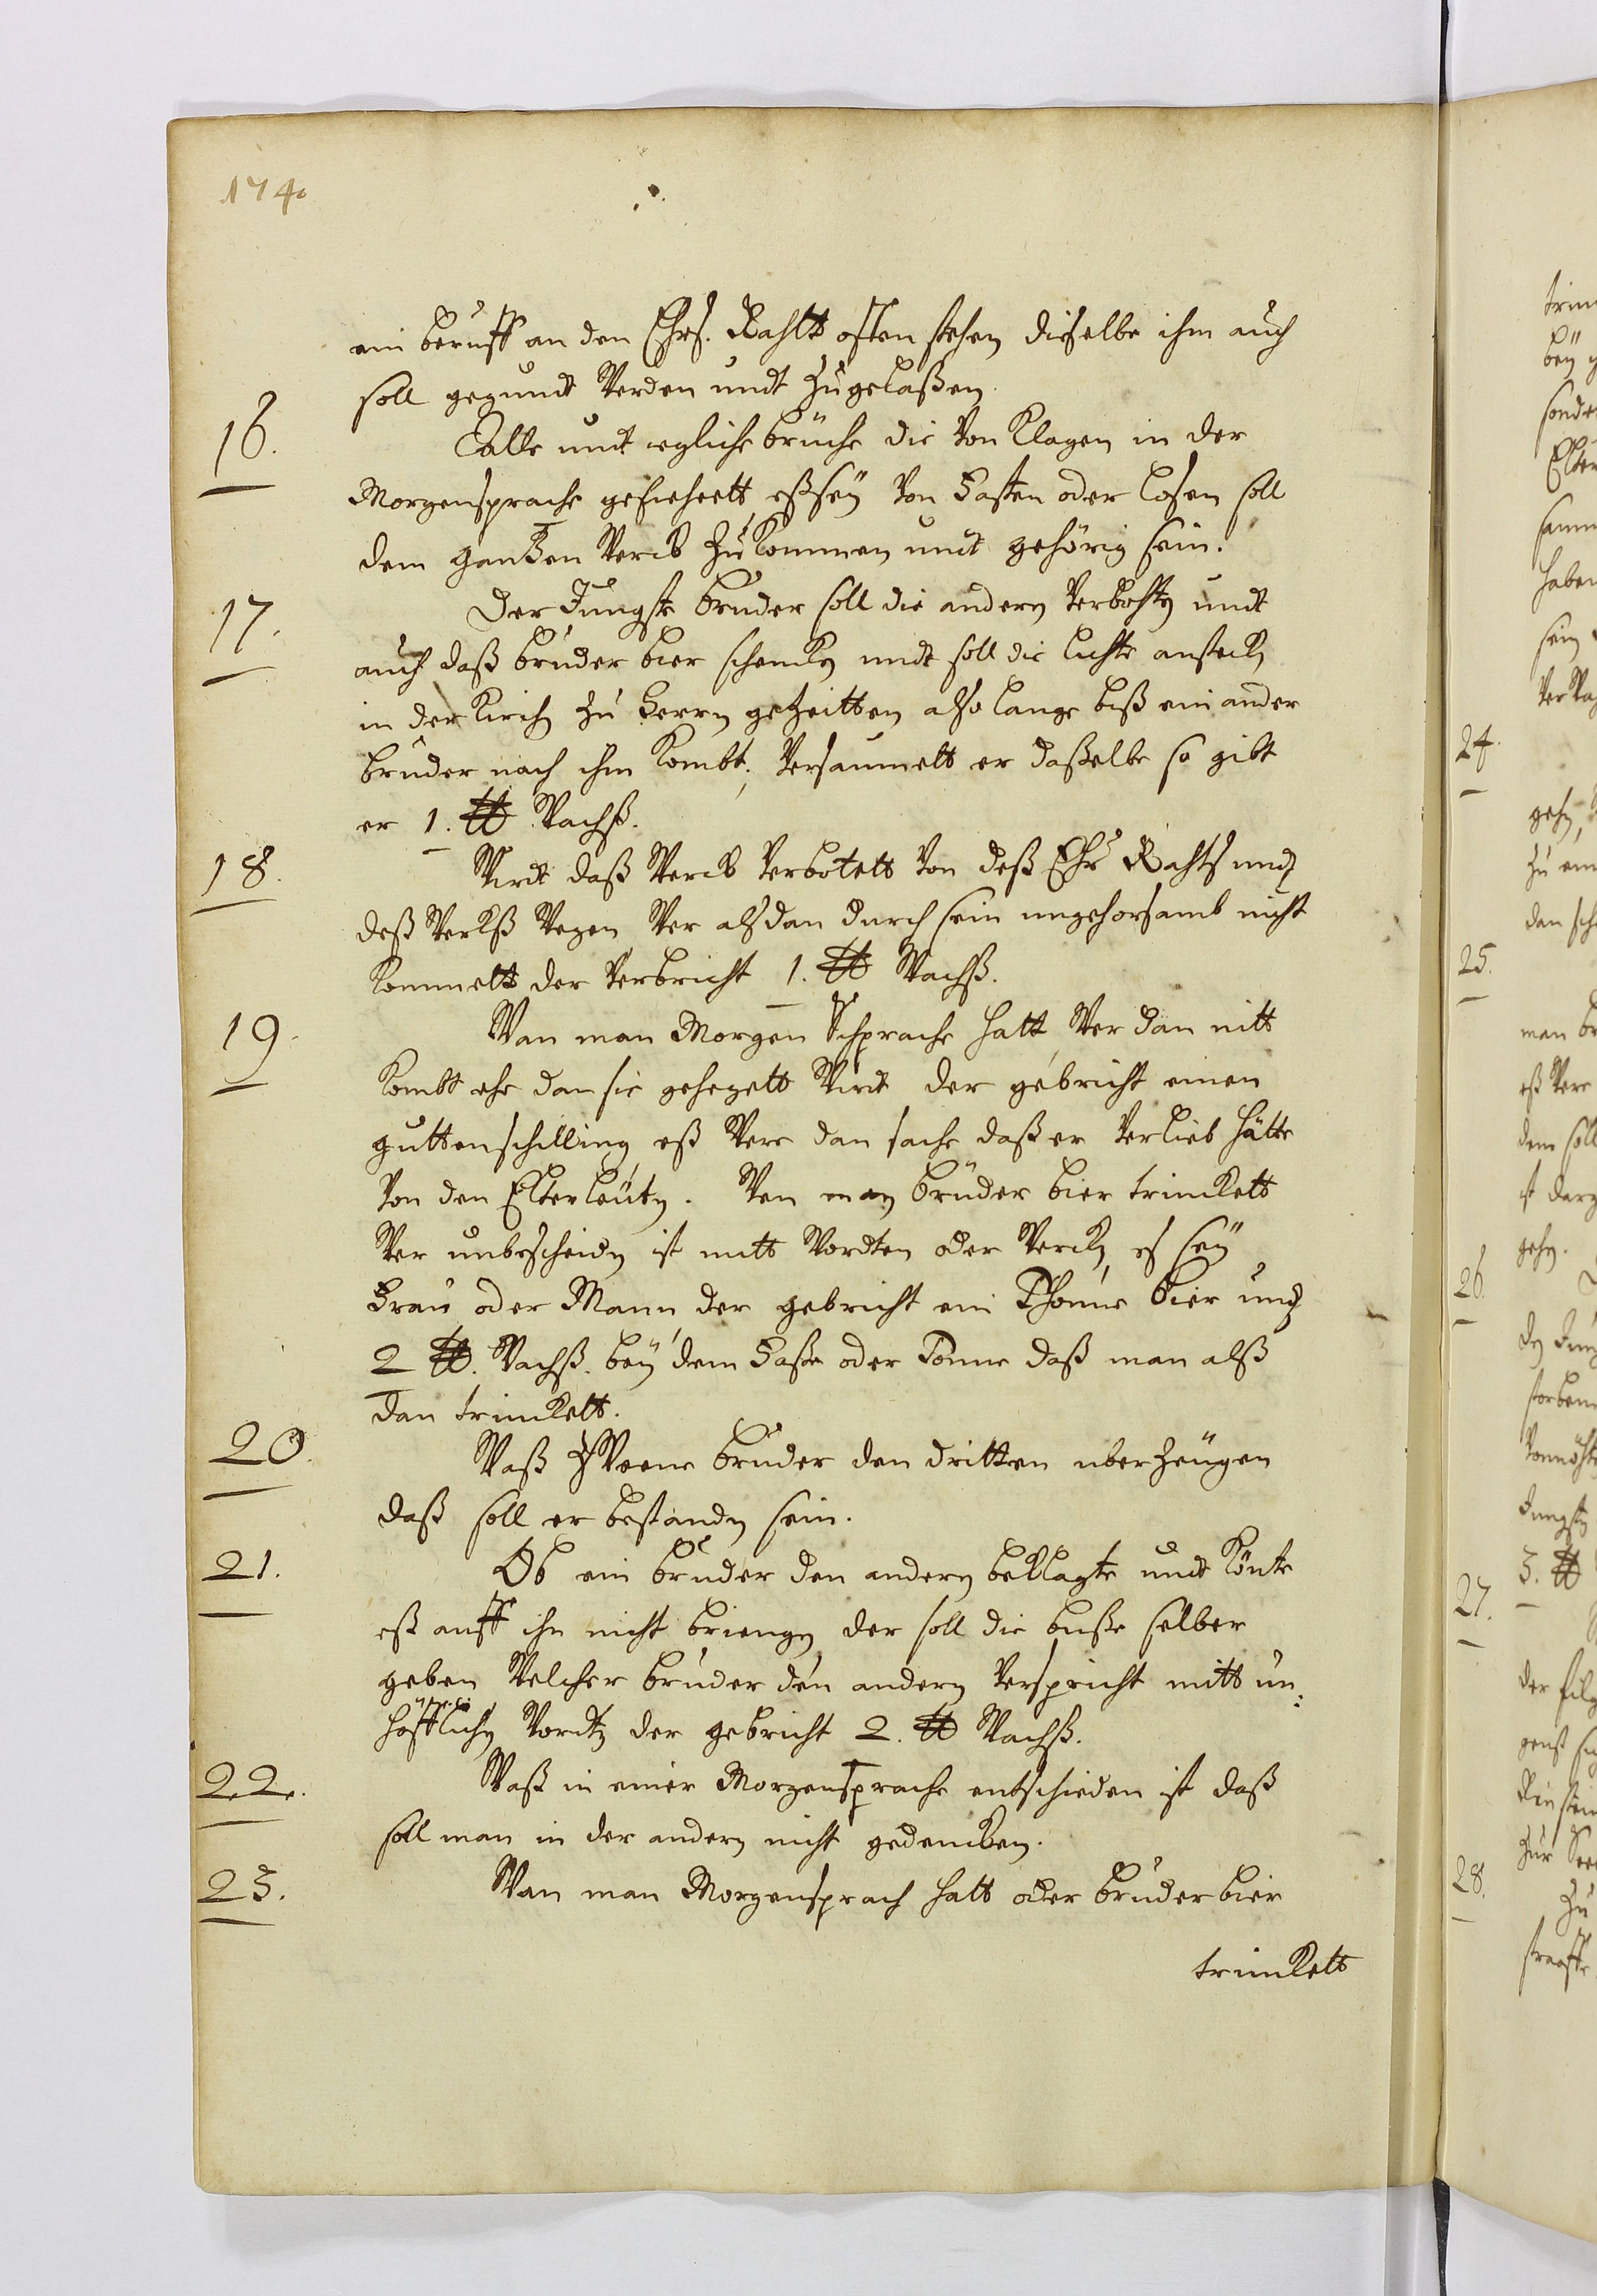 174.
ein beruff an den Ehrs. Rahtt offen stehen dieselbe ihm auch
soll gegundt Werden undt Zugelaßen
16.
Talle undt egliche brüche die Von Klagen in der
Morgensprache geschehett, eß seÿ Von Fasten oder losen soll
dem gantzen Werck Zukommen undt gehörig sein.
17.
Der Jungste bruder soll die andern Verbohten undt
auch daß bruder bier schencken undt soll die lichte anstecken
in der Kirchen Zu Herrn getzeitten also lange biß ein ander
bruder nach ihm Kombt, Versaumett er daßelbe so gibt
er 1. ℔ Wachß.
18.
Wirdt daß Werck Verbotett Von deß Ehrs Rahts und
deß Wercks Wegen Wer alsdan durch sein ungehorsamb nicht
Kommett der Verbricht 1. ℔ Wachß.
19.
Wan man Morgen Sprache hatt Wer dan nitt
Kombt ehe dan sie gehegett Wirdt der gebricht einen
gutten schilling eß Were dan sache daß er Verlieb hätte
Von den Elterleuten. Wen man brüder bier trinckett
Wer unbescheiden ist mitt Wordten oder Wercken es seÿ
Frau oder Mann der gebricht ein Thonne bier und
2 ℔. Wachß. beÿ dem Faße oder Tonne daß man alß
dan trinckett.
20.
Waß Zweene bruder den dritten uberzeugen
daß soll er bestanden sein.
21.
Ob ein bruder den andern beklagte undt Könte
eß auff ihn nicht briengen der soll die buße selber
geben Welcher bruder den andern Verspricht mitt un¬
höfflichen Wordten der gebricht 2. ℔ Wachß.
22.
Waß in einer Morgensprache entschieden ist daß
soll man in der andern nicht gedencken.
23.
Wan man Morgensprach hatt oder bruder bier
trinckett
24.
25.
26.
27.
28.